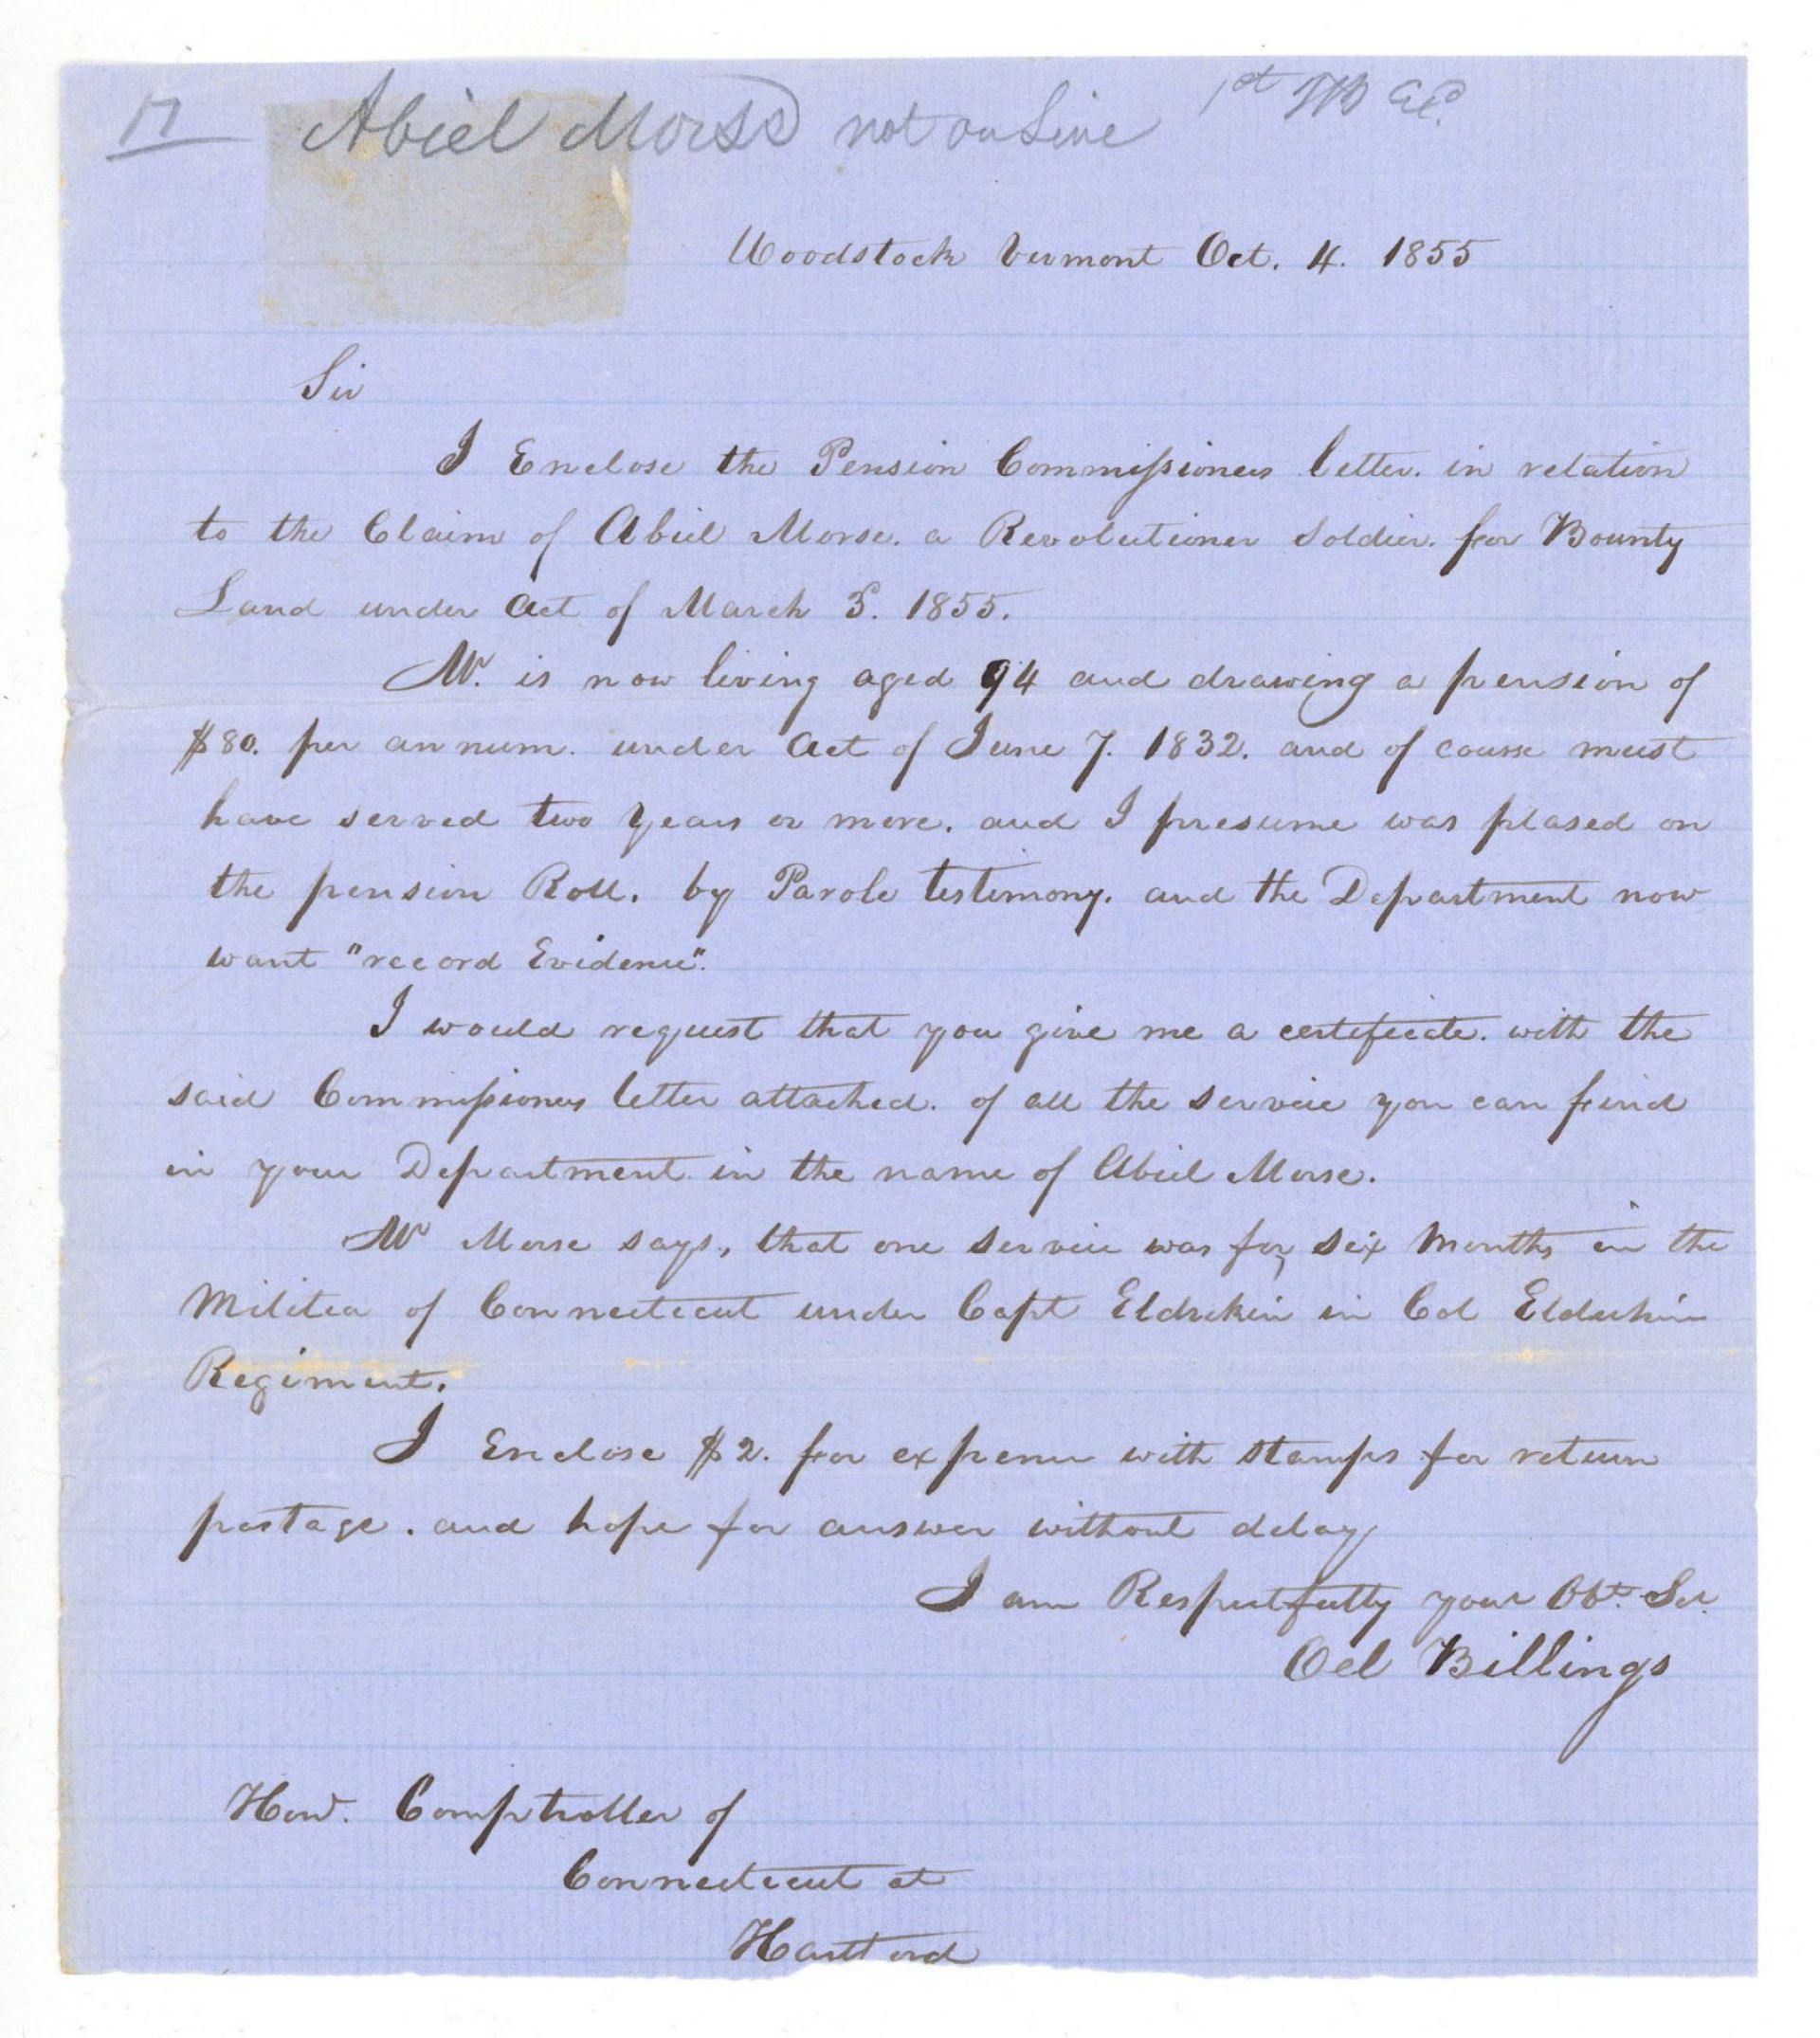 17 Abiel Morse not on Line 1st
Woodstock Vermont Oct. 4. 1855
Sir
I Enclose the Pension Commissioners letter. in relation
to the Claim of Abiel Morse. a Revolutioner Soldier. for Bounty
Land under Act of March 3. 1855.
Mr. is now living aged 94 and drawing a pension of
$80. per annum. under Act of June 7. 1832. and of course must
have served two years or more. and I presume was plased on
the pension Roll. by Parole testimony. and the Department now
want "record Evidence".
I would request that you give me a certificate. with the
said Commissioners letter attached. of all the service you can find
in your Department in the name of Abiel Morse.
Mr Morse says, that one service was for six Months in the
Militea of Connecticut under Capt Elderkin in Col Elderkin
Regiment.
I Enclose $2. for expense with stamps for return
postage. and hope for answer without delay
I am Respectfully your Obt. Sr.
Oel Billings
Hon. Comptroller of
Connecticut at
Hartford